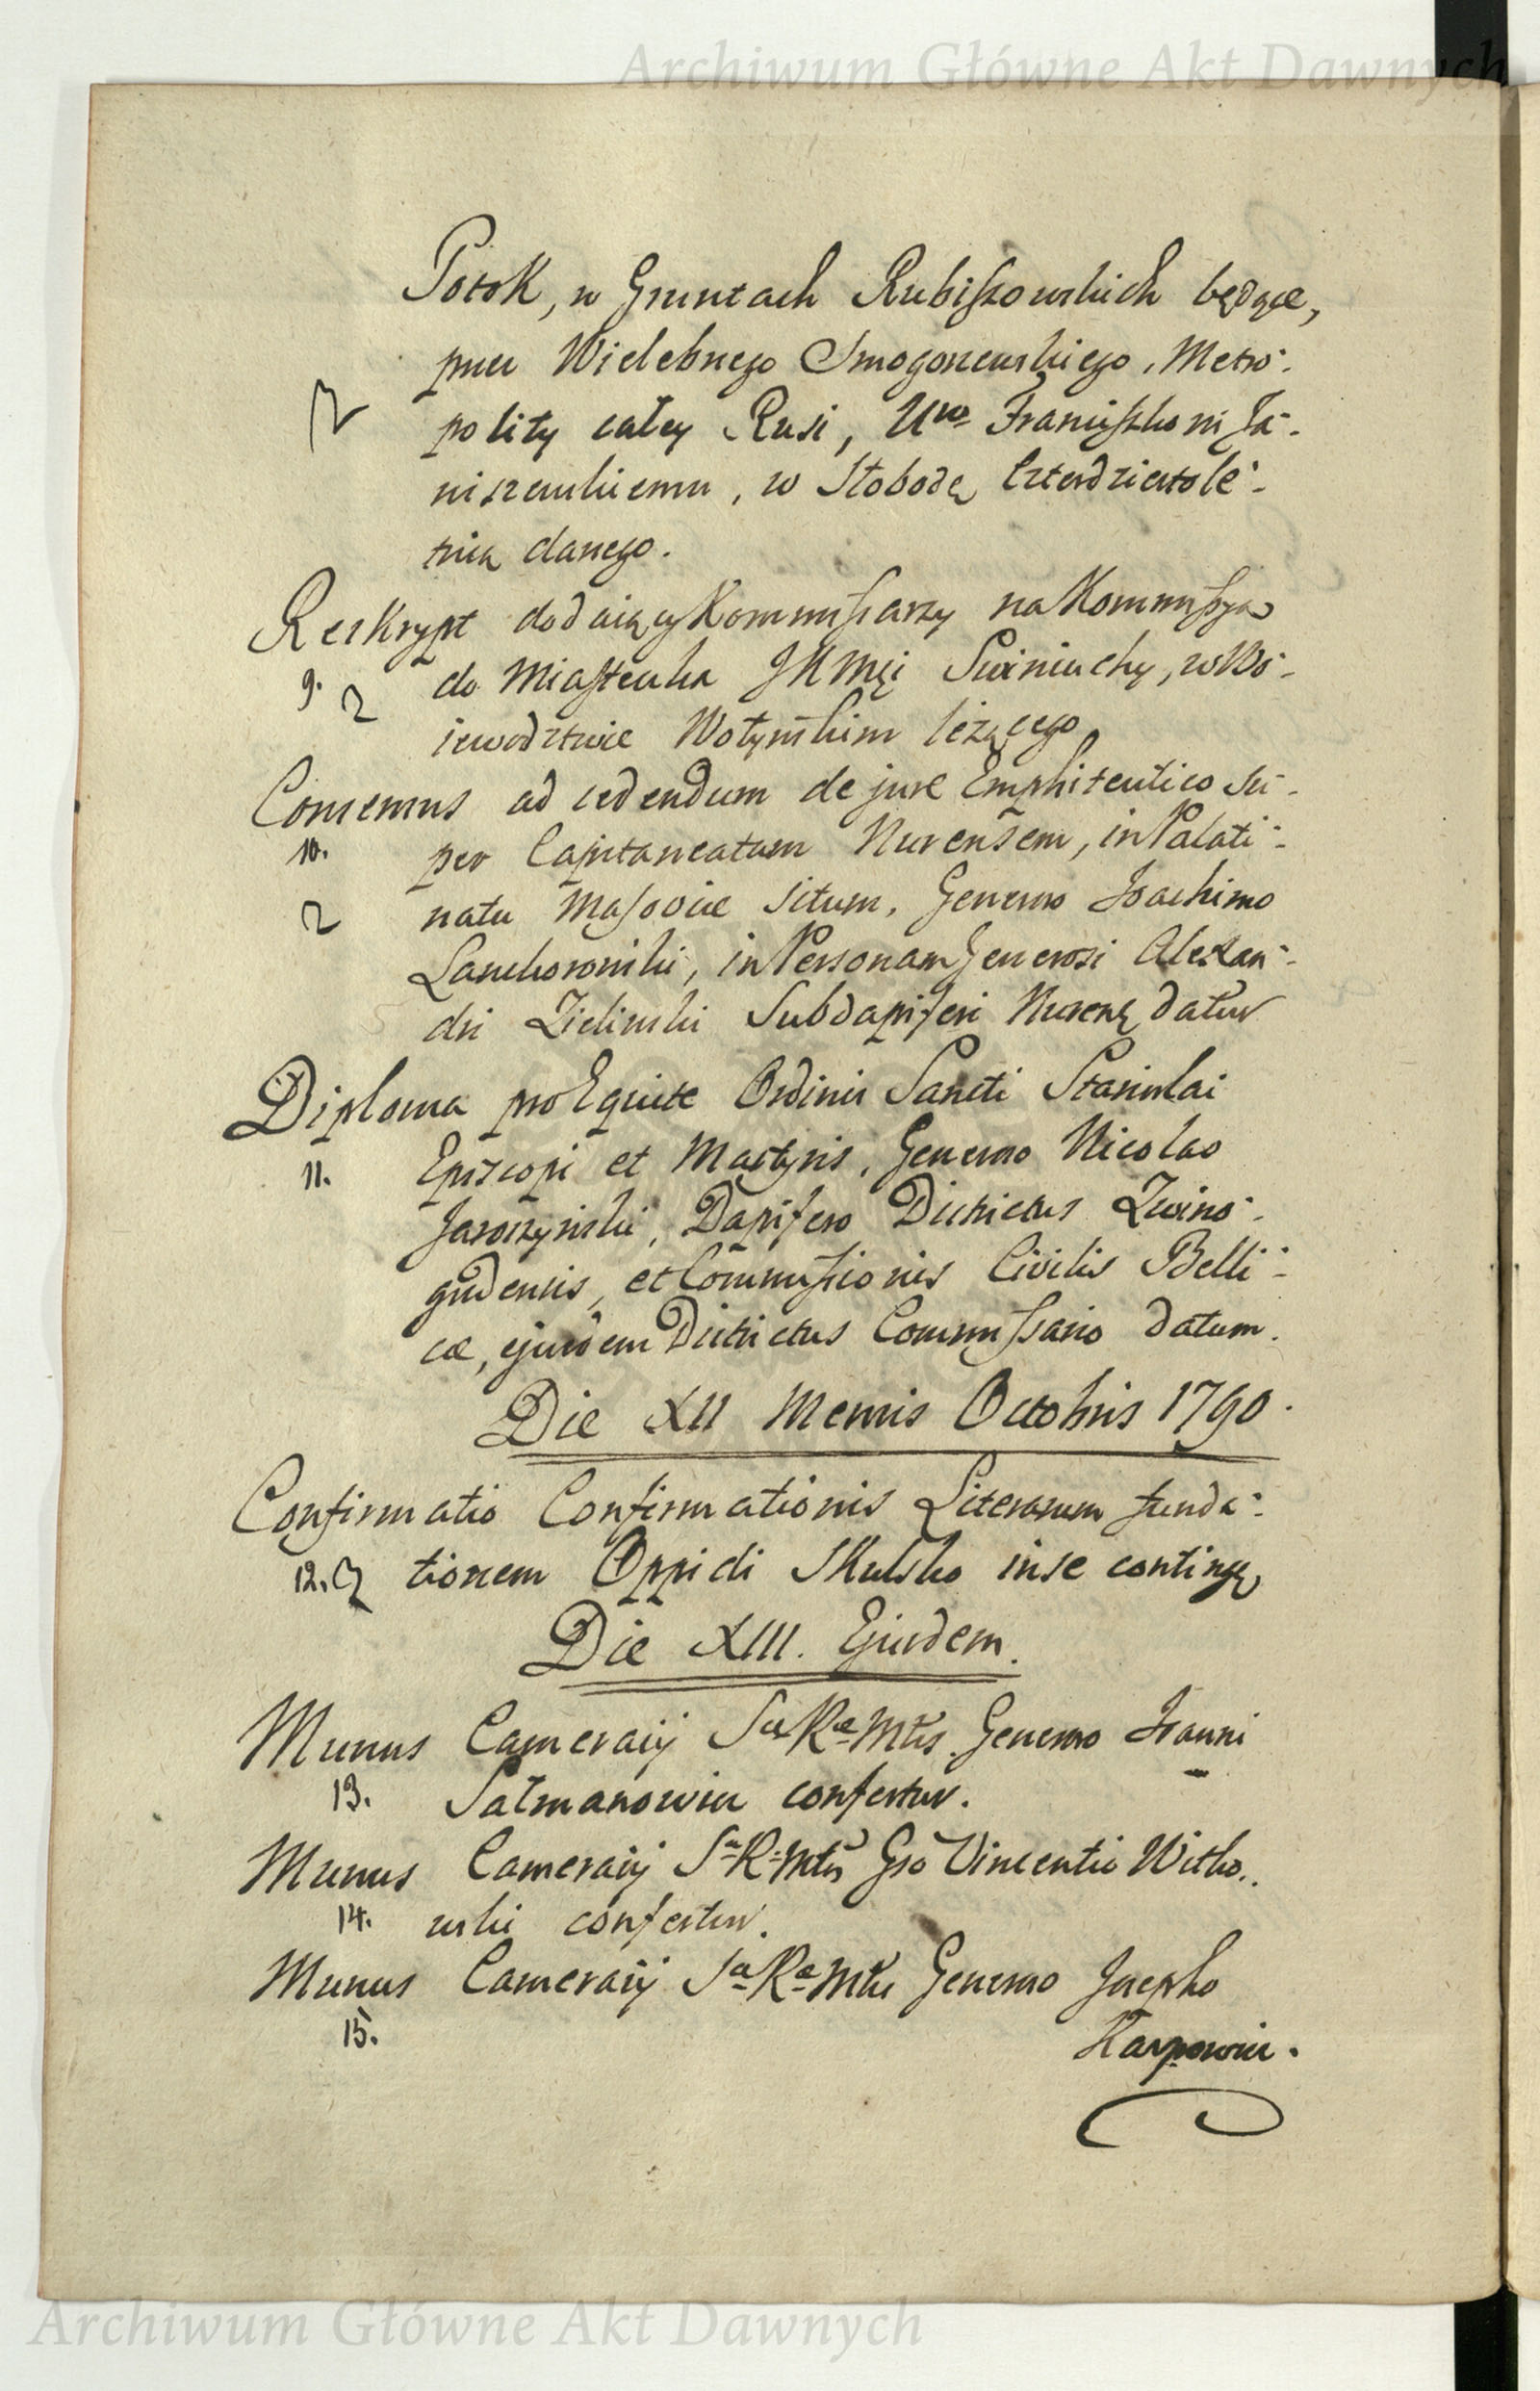 Archiwum Główne Akt Dawnych
Potok, w Gruntach Rubiszowskich będące,
przez Wielebnego Smogorzewskiego, Metro-
polity całey Rusi, Uro Franciszkowi Ja-
niszewskiemu, w Słobodę Czterdziestole-
tnią danego.
Reskrypt dodaiący Kommissarzy na Kommissyą
9. do Miasteczka JKMci Swiniuchy, w Wo-
iewodztwie Wołyńskim leżącego
Consensus ad cedendum de jure Emphiteutico su-
10. per Capitaneatum Nurensem, in Palati-
natu Masoviæ situm, Generoso Joachimo
Lanckoroński, in Personam Generosi Alexan-
dri Zielinski Subdapiferi Nurens datur
Diploma pro Equite Ordinis Sancti Stanislai
11. Episcopi et Martyris, Generoso Nicolao
Jaroszyński, Dapifero Districtus Zwino-
grodensis, et Commissionis Civilis Belli-
cæ, ejusdem Districtus Commissario datum.
Die XII Mensis Octobris 1790.
Confirmatio Confirmationis Literarum funda-
12. tionem Oppidi Skulsko in se contin
Die XIII. Ejusdem.
Munus Camerarij Sæ Ræ Mtis Generoso Joanni
13. Salmanowicz confertur.
Munus Camerarij Sæ Ræ Mtis Gso Vincentio Witko..
14. wski confertur.
Munus Camerarij Sæ Ræ Mtis Generoso Josepho
15.
Karpowicz.
Archiwum Główne Akt Dawnych